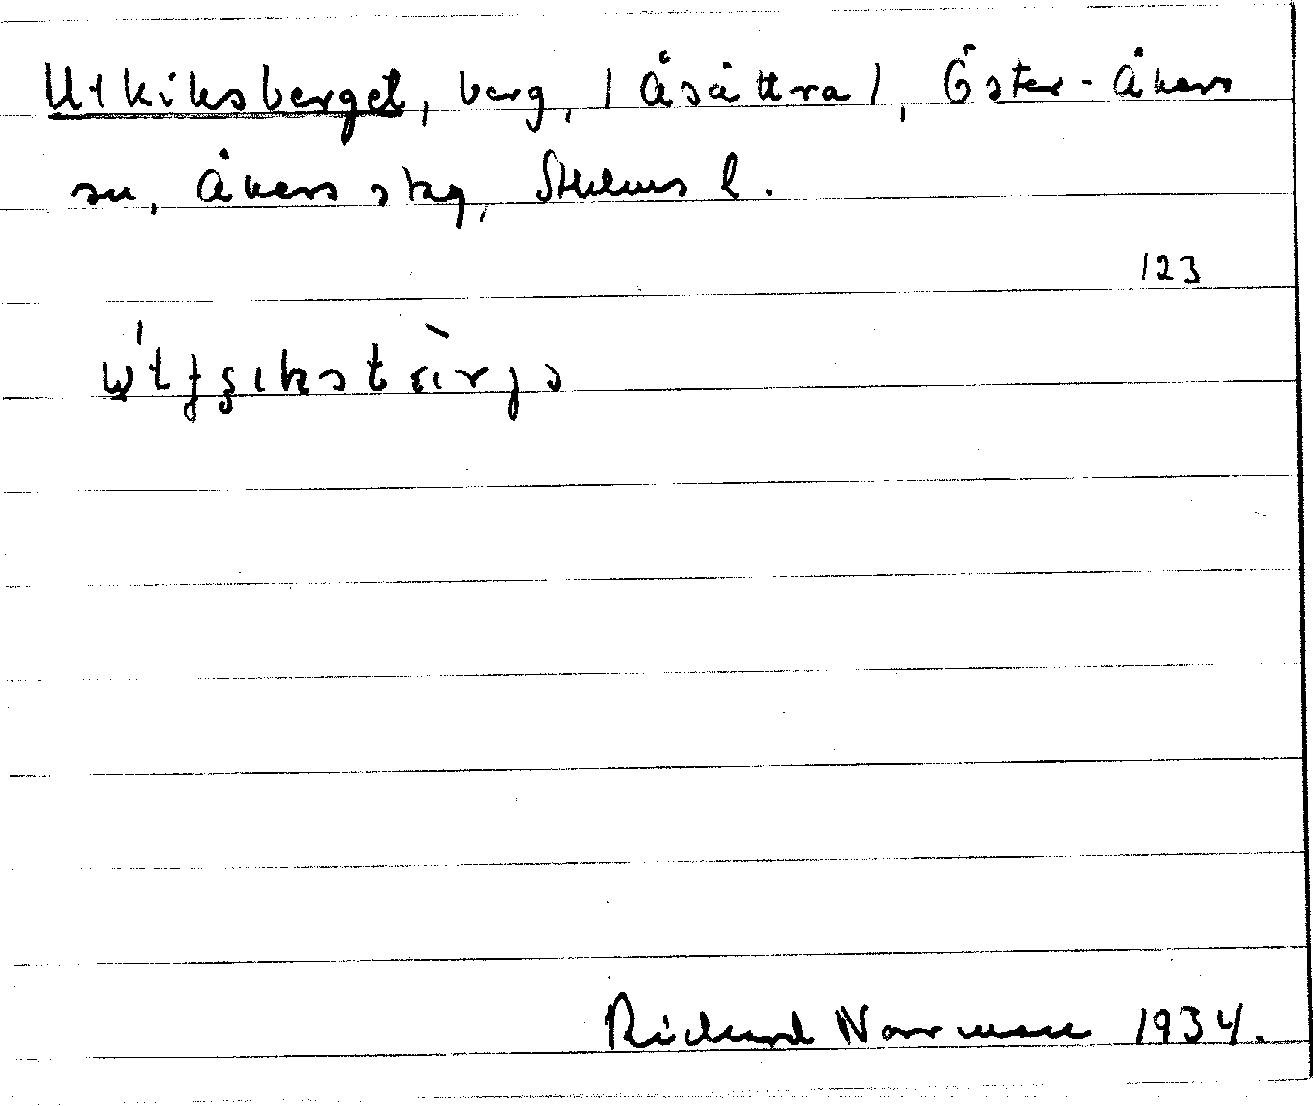 Utkiksberget, berg, /Åsättra/, Öster-Åkers
sn, Åkers skg, Sthlms l.
123
Richard Norrman 1934.